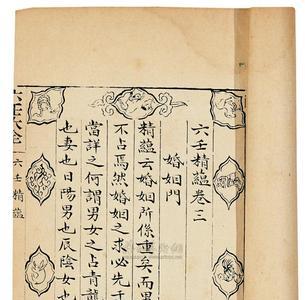 六壬精蘊卷三
婚姻門
精蘊云婚姻所係重矣而男
不占焉然婚姻之求必先于
當詳之何謂男女之占青龍
也妻也日陽男也辰陰女也
六壬大全
六壬精蘊